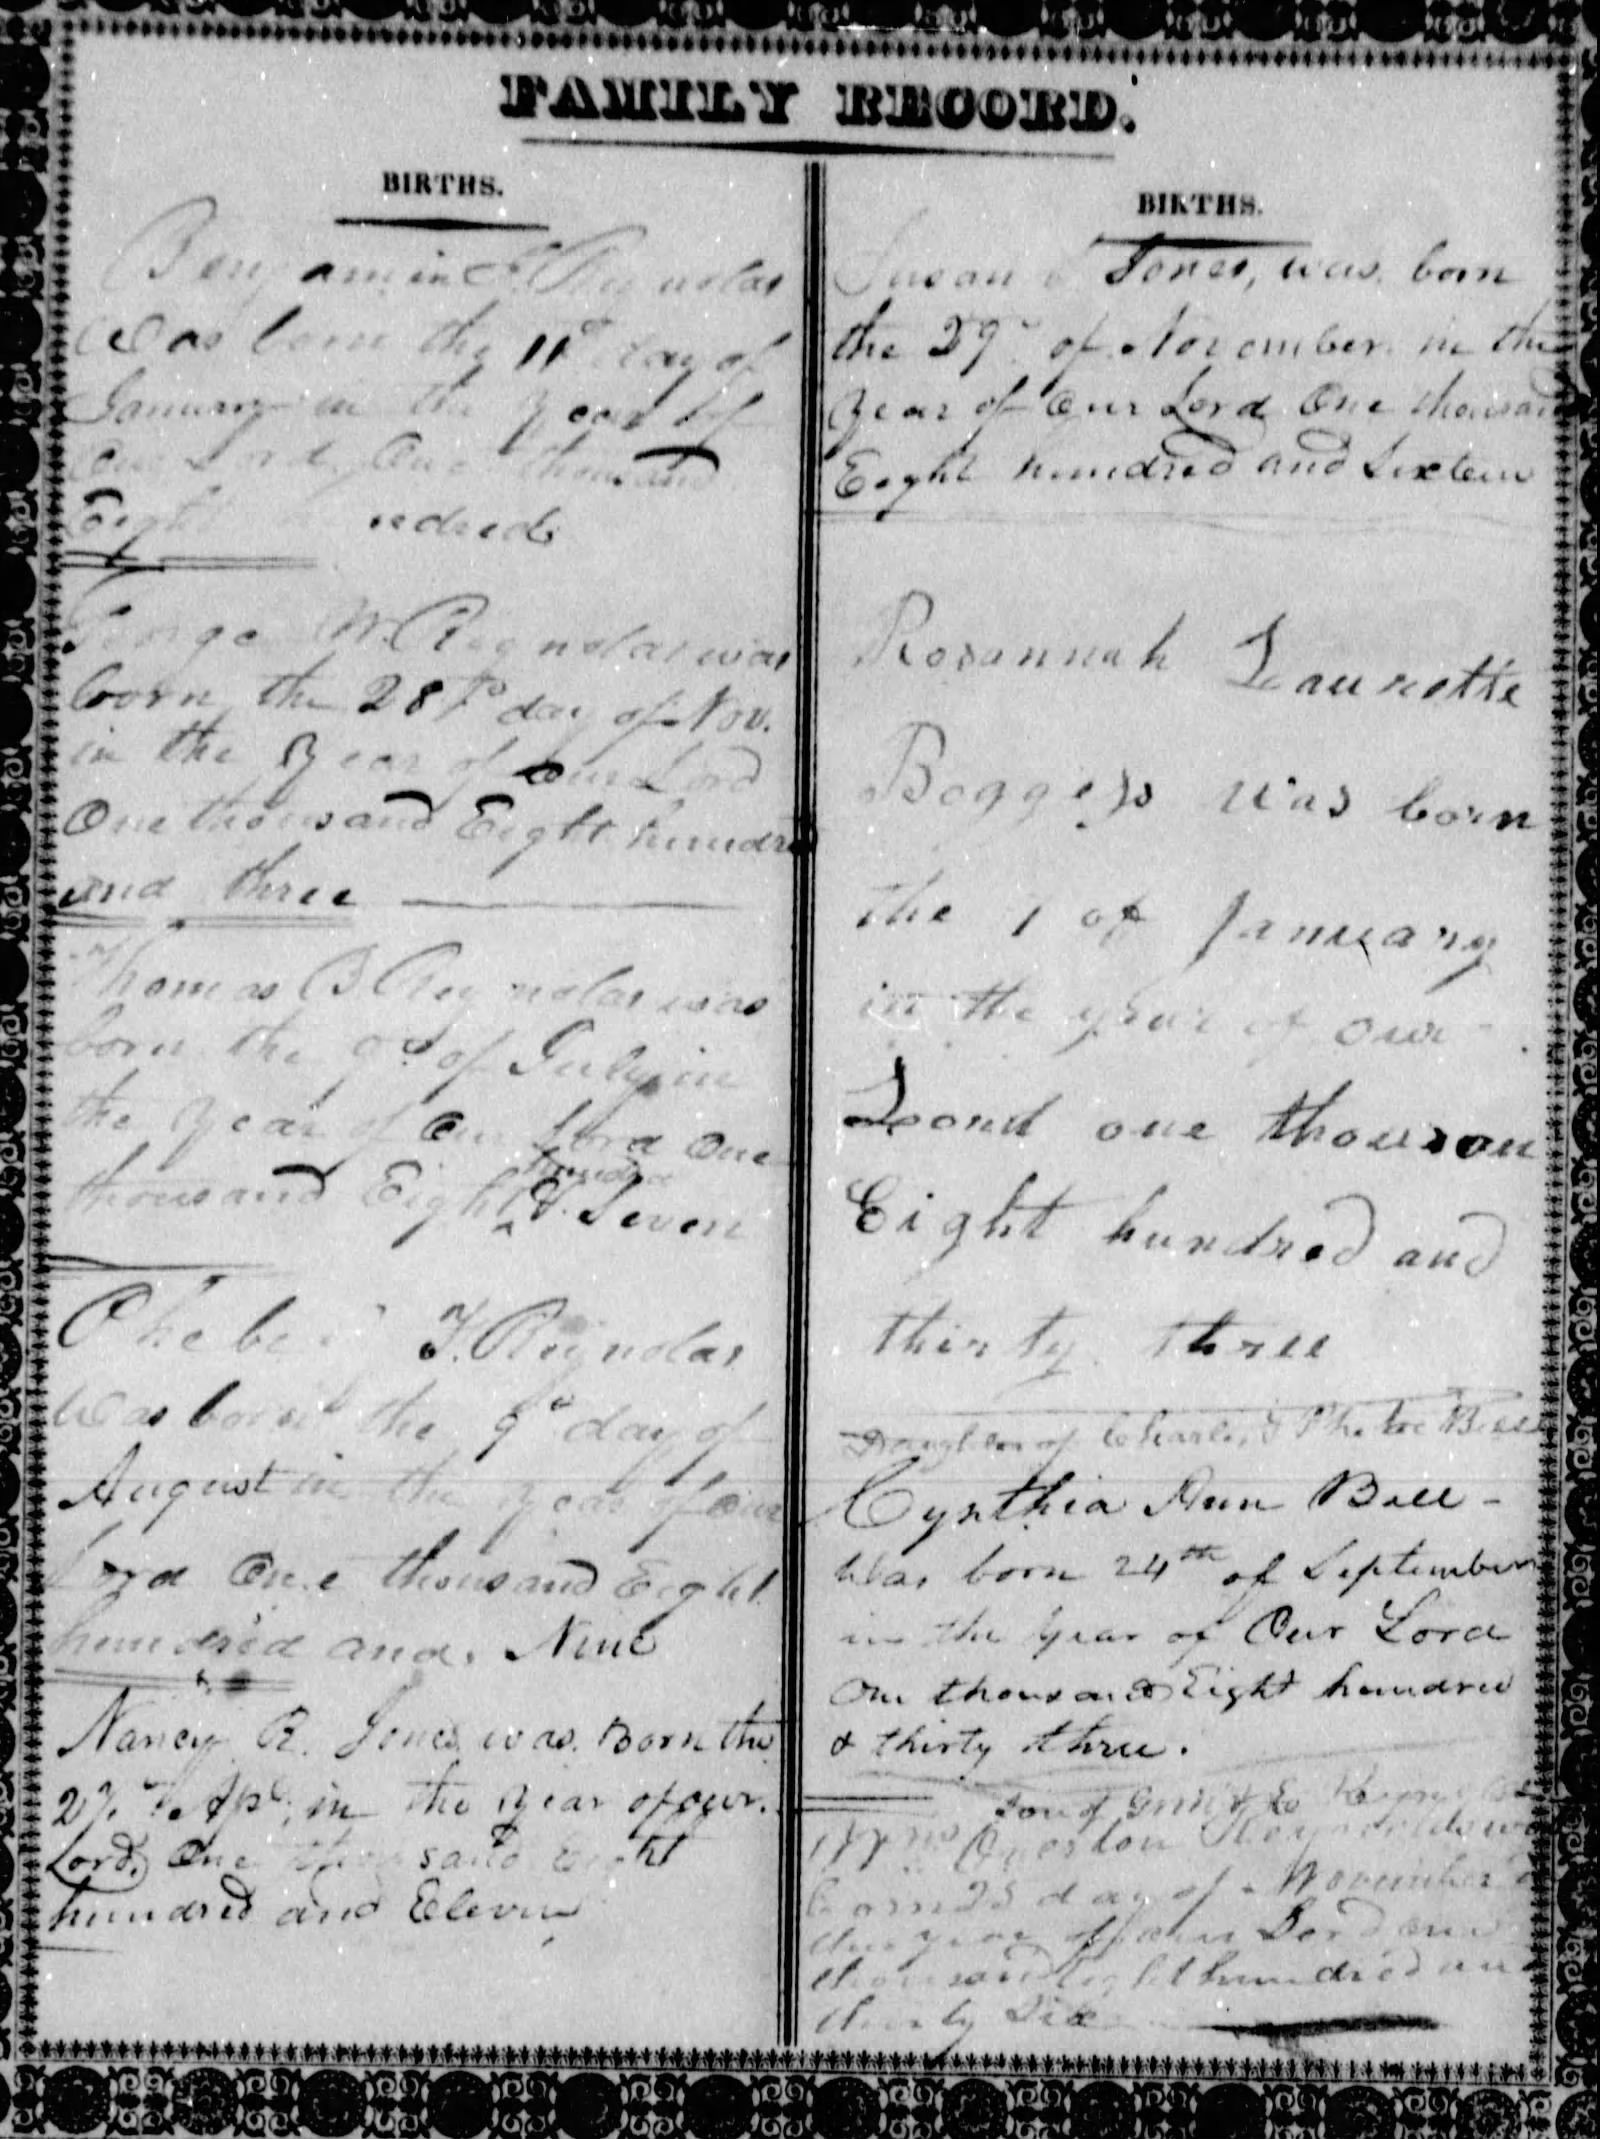 FAMILY RECORD.
BIRTHS.
Benjamin F. Reynolds
Was born the 11th day of
January in the year of
Our Lord One thousand
Eight hundred
George W. Reynolds was
born the 28th day of Nov.
in the year of our Lord
One thousand Eight hundred
and three
Thomas B Reynolds was
born the 9th of July in
the year of Our Lord One
hundred
thousand Eight & Seven
Phebe T. Reynolds
Was born the 9th day of
August in the year of our
Lord One thousand Eight
hundred and Nine
Nancy R. Jones was Born the
27th Apl in the year of our
Lord One thousand Eight
hundred and Eleven
BIRTHS.
Susan Jones, was born
the 29th of November in the
year of Our Lord One thousand
Eight hundred and Sixteen
Rosannah Laurette
Boggess was born
the 1 of January
in the year of our
Lord one thousan
Eight hundred and
thirty three
Daughter of Charles & Phebe Bell
Cynthia Ann Bell -
Was born 24th of September
in the year of Our Lord
One thousand Eight hundred
& thirty three.
Son of
Overton Reynolds was
born 25 day of November
the year of our Lord one
thousand Eight hundred and
thirty Six